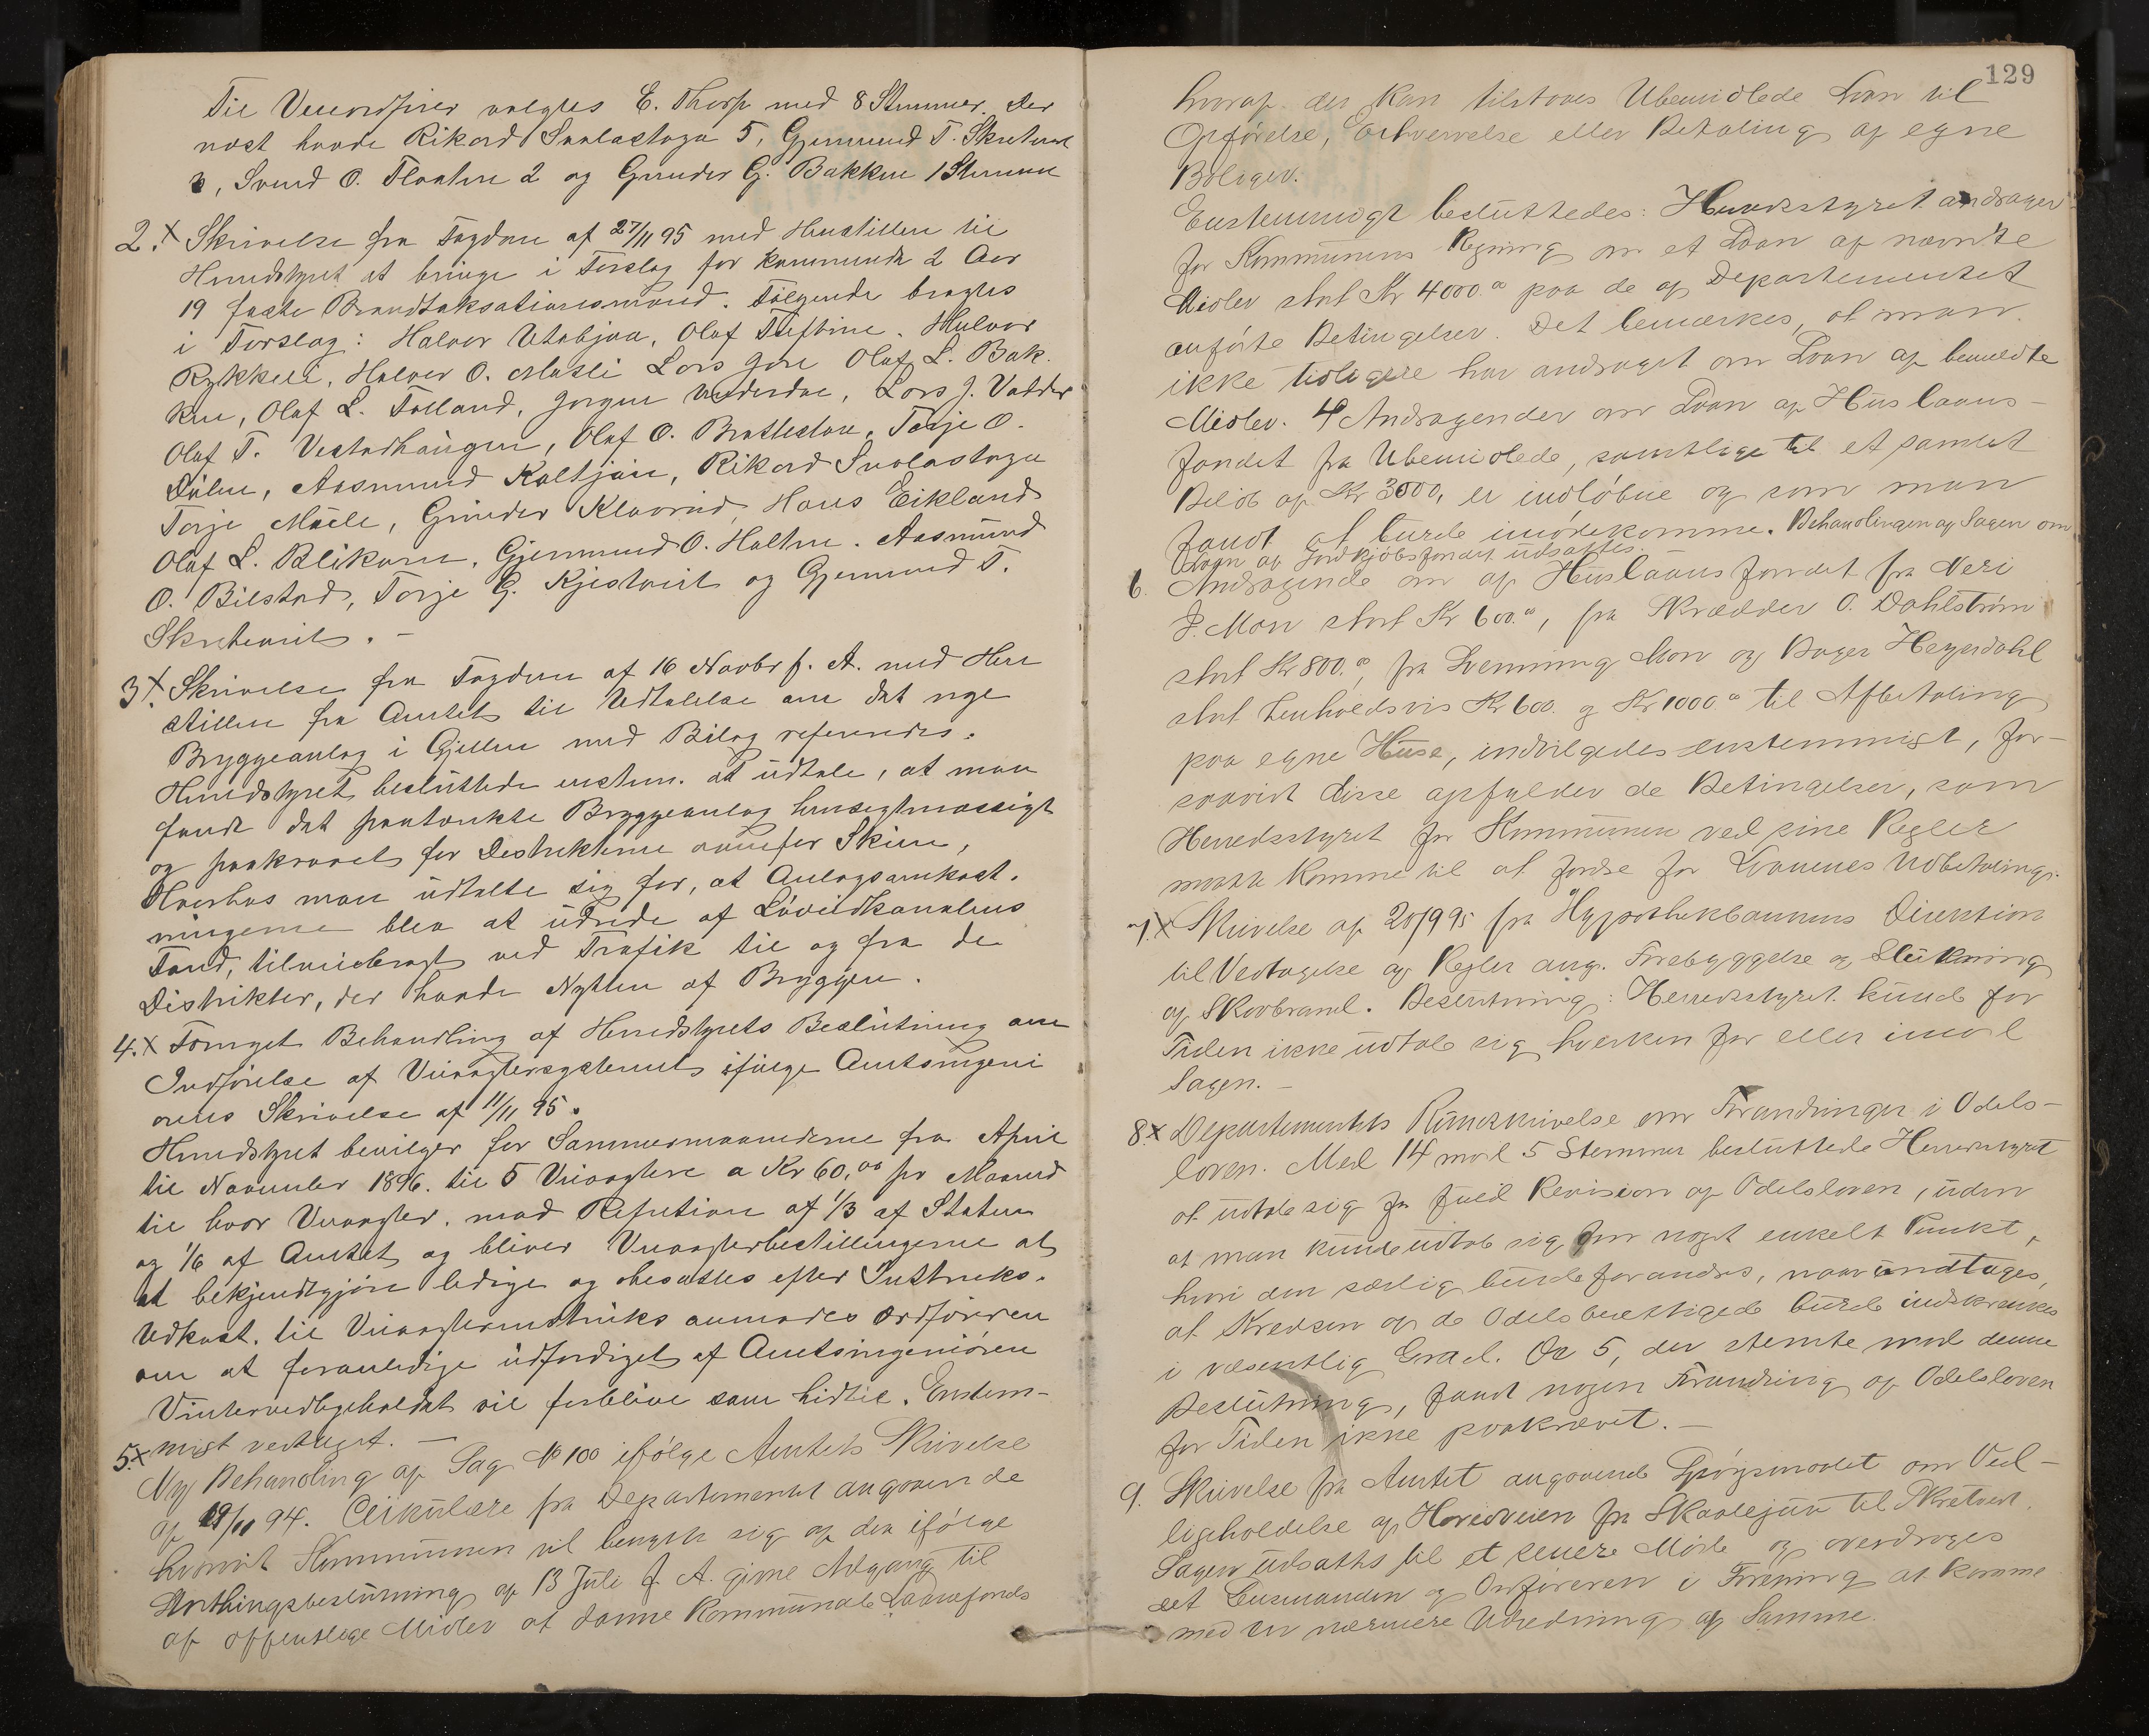 Til Viceordfører valgtes E. Thorp med 8 Stemmer, der
næst havde Rikard Svalastoga 5, Gjermund T. Skretveit
3, Svend O. Flaaten 2 og Gunder G. Bakken 1 Stemme
2. x Skrivelse fra Fogden af 27/11 95 med Henstillen til
Herredstyret at bringe i Forslag for kommende 2 Aar
19 faste Brandtaksationsmænd. Følgende bragtes
i Forslag: Halvor Utabjaa, Olaf Tveftine. Halvor
Rykkeli, Halvor O. Maseli Lars Gøre Olaf L. Bak-
ken, Olaf L. Folland, Jørgen Vrderdae, Lars J. Valder
Olaf T. Vestadhaugen, Olaf O. Brattestøe, Torje O.
Dalen, Aasmund Kaltjan, Rikard Svalastoga
Torje Mæle, Gunder Klovrud, Hans Eikland
Olaf L. Blikom, Gjermund O. Holten. Aasmund
O. Bilstad, Torje G. Kjestveit og Gjermund T.
Skretveit. —
3. x Skrivelse fra Fogden af 16 Novbr f. A. med Hen
stillen fra Amtet til Udtalelse om det nye
Bryggeanlæg i Gjellen med Bilag refereredes.
Herredstyret besluttede enstem. at udtale, at man
fandt det paatænkte Bryggeanlæg hensigtmæssigt
og paakrævet for Distrikterne ovenfor Skien,
Hvorhos man udtalte sig for, at Anlægsomkost-
ningerne blev at udrede af Løveidkanalens
Fond, tilveiebragt ved Trafik til og fra de
Distrikter, der havde Nytten af Bryggen.
4. x Fornyet Behandling af Herredstyrets Beslutning om
Indførelse af Veivogtersystemet ifølge Amtsingeni
ørens Skrivelse af 11/11 95.
Herredstyret bevilger for Sommermaanederne fra April
til November 1896. til 5 Veivogtere a Kr 60,00 pr Maaned
til hver Veivogter. mod Refution af 1/3 af Staten
og 1/6 af Amtet og bliver Veivogterbestillingerne at
at bekjendtgjøre ledige og besættes efter Instruks.
Udkast til Veivogterinstruks anmodes Ordføreren
om at foranledige udfærdiget af Amtsingeniøren
Vintervedligeholdet vil forblive som hidtil. Enstem-
migt vedtaget. —
5. x Ny Behandling af Sag No 100 ifølge Amtets Skrivelse
af 19/11 94. Cirkulære fra Departementet angaaende
hvorvidt Kommunen vil benytte sig af den ifølge
Storthingsbeslutning af 13 Juli f. A. givne Adgang til
af offentlige Midler at danne Kommunale Laanefonds
129
hvoraf der kan tilstaaes Ubemidlede Laan til
Opførelse, Erhvervelse eller Betaling af egne
Boliger.
Enstemmigt besluttedes: Herredsstyret andrager
for Kommunens Regning om et Laan af nævnte
Midler stort Kr 4000.00 paa de af Departementet
anførte Betingelser. Det bemærkes, at man
ikke tidligere har andraget om Laan af bemeldte
Midler. 4 Andragender om Laan af Huslaans-
fondet fra Ubemidlede, samtlige til et samlet
Beløb af Kr 3000, er indløbne og som man
fandt at burde imødekomme. Behandlingen af Sagen om
Laan af Jordkjøbsfondet udsattes.
6. Andragende om af Huslaansfondet fra Neri
P. Moen stort Kr 600.00, fra Skrædder O. Dahlstrøm
stort Kr 800.00, fra Svenning Moen og Bager Heyerdahl
stort henholdsvis Kr 600. og Kr 1000.00 til Afbetaling
paa egne Huse, indvilgedes enstemmigt, for-
saavidt disse opfylder de Betingelser, som
Herredsstyret for Kommunen ved sine Regler
maatte komme til at fordre for Laanenes Udbetaling.
7. x Skrivelse af 20/9 95 fra Hypothekbankens Direktion
til Vedtagelse af Regler ang. Forebyggelse og Slukning
af Skovbrand. Beslutning: Herredsstyret kunde for
Tiden ikke udtale sig hverken for eller imod
Sagen. —
8. x Departementets Rundskrivelse om Forandringer i Odels-
loven. Med 14 mod 5 Stemmer besluttede Herredsstyret
at udtale sig for fuld Revision af Odelsloven, uden
at man kunde udtale sig om noget enkelt Punkt,
hvori den særlig burde forandres, naar undtages,
at Kredsen af de Odelsberettigede burde indskrænkes
i væsentlig Grad. De 5, der stemte mod denne
Beslutning, fandt nogen Forandring af Odelsloven
for Tiden ikke paakrævet. —
9. Skrivelse fra Amtet angaaende Spørgsmaalet om Ved-
ligeholdelse af Hovedveien fra Skaolejuv til Skretveit.
Sagen udsattes til et senere Møde og overdrages
det Lensmanden og Ordføreren i Forening at komme
med en nærmere Udredning af Samme.